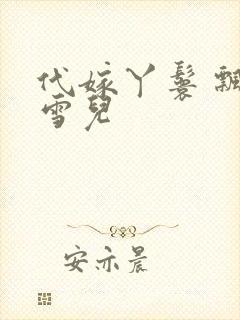 代嫁丫鬟 飄
雪兒
安亦晨